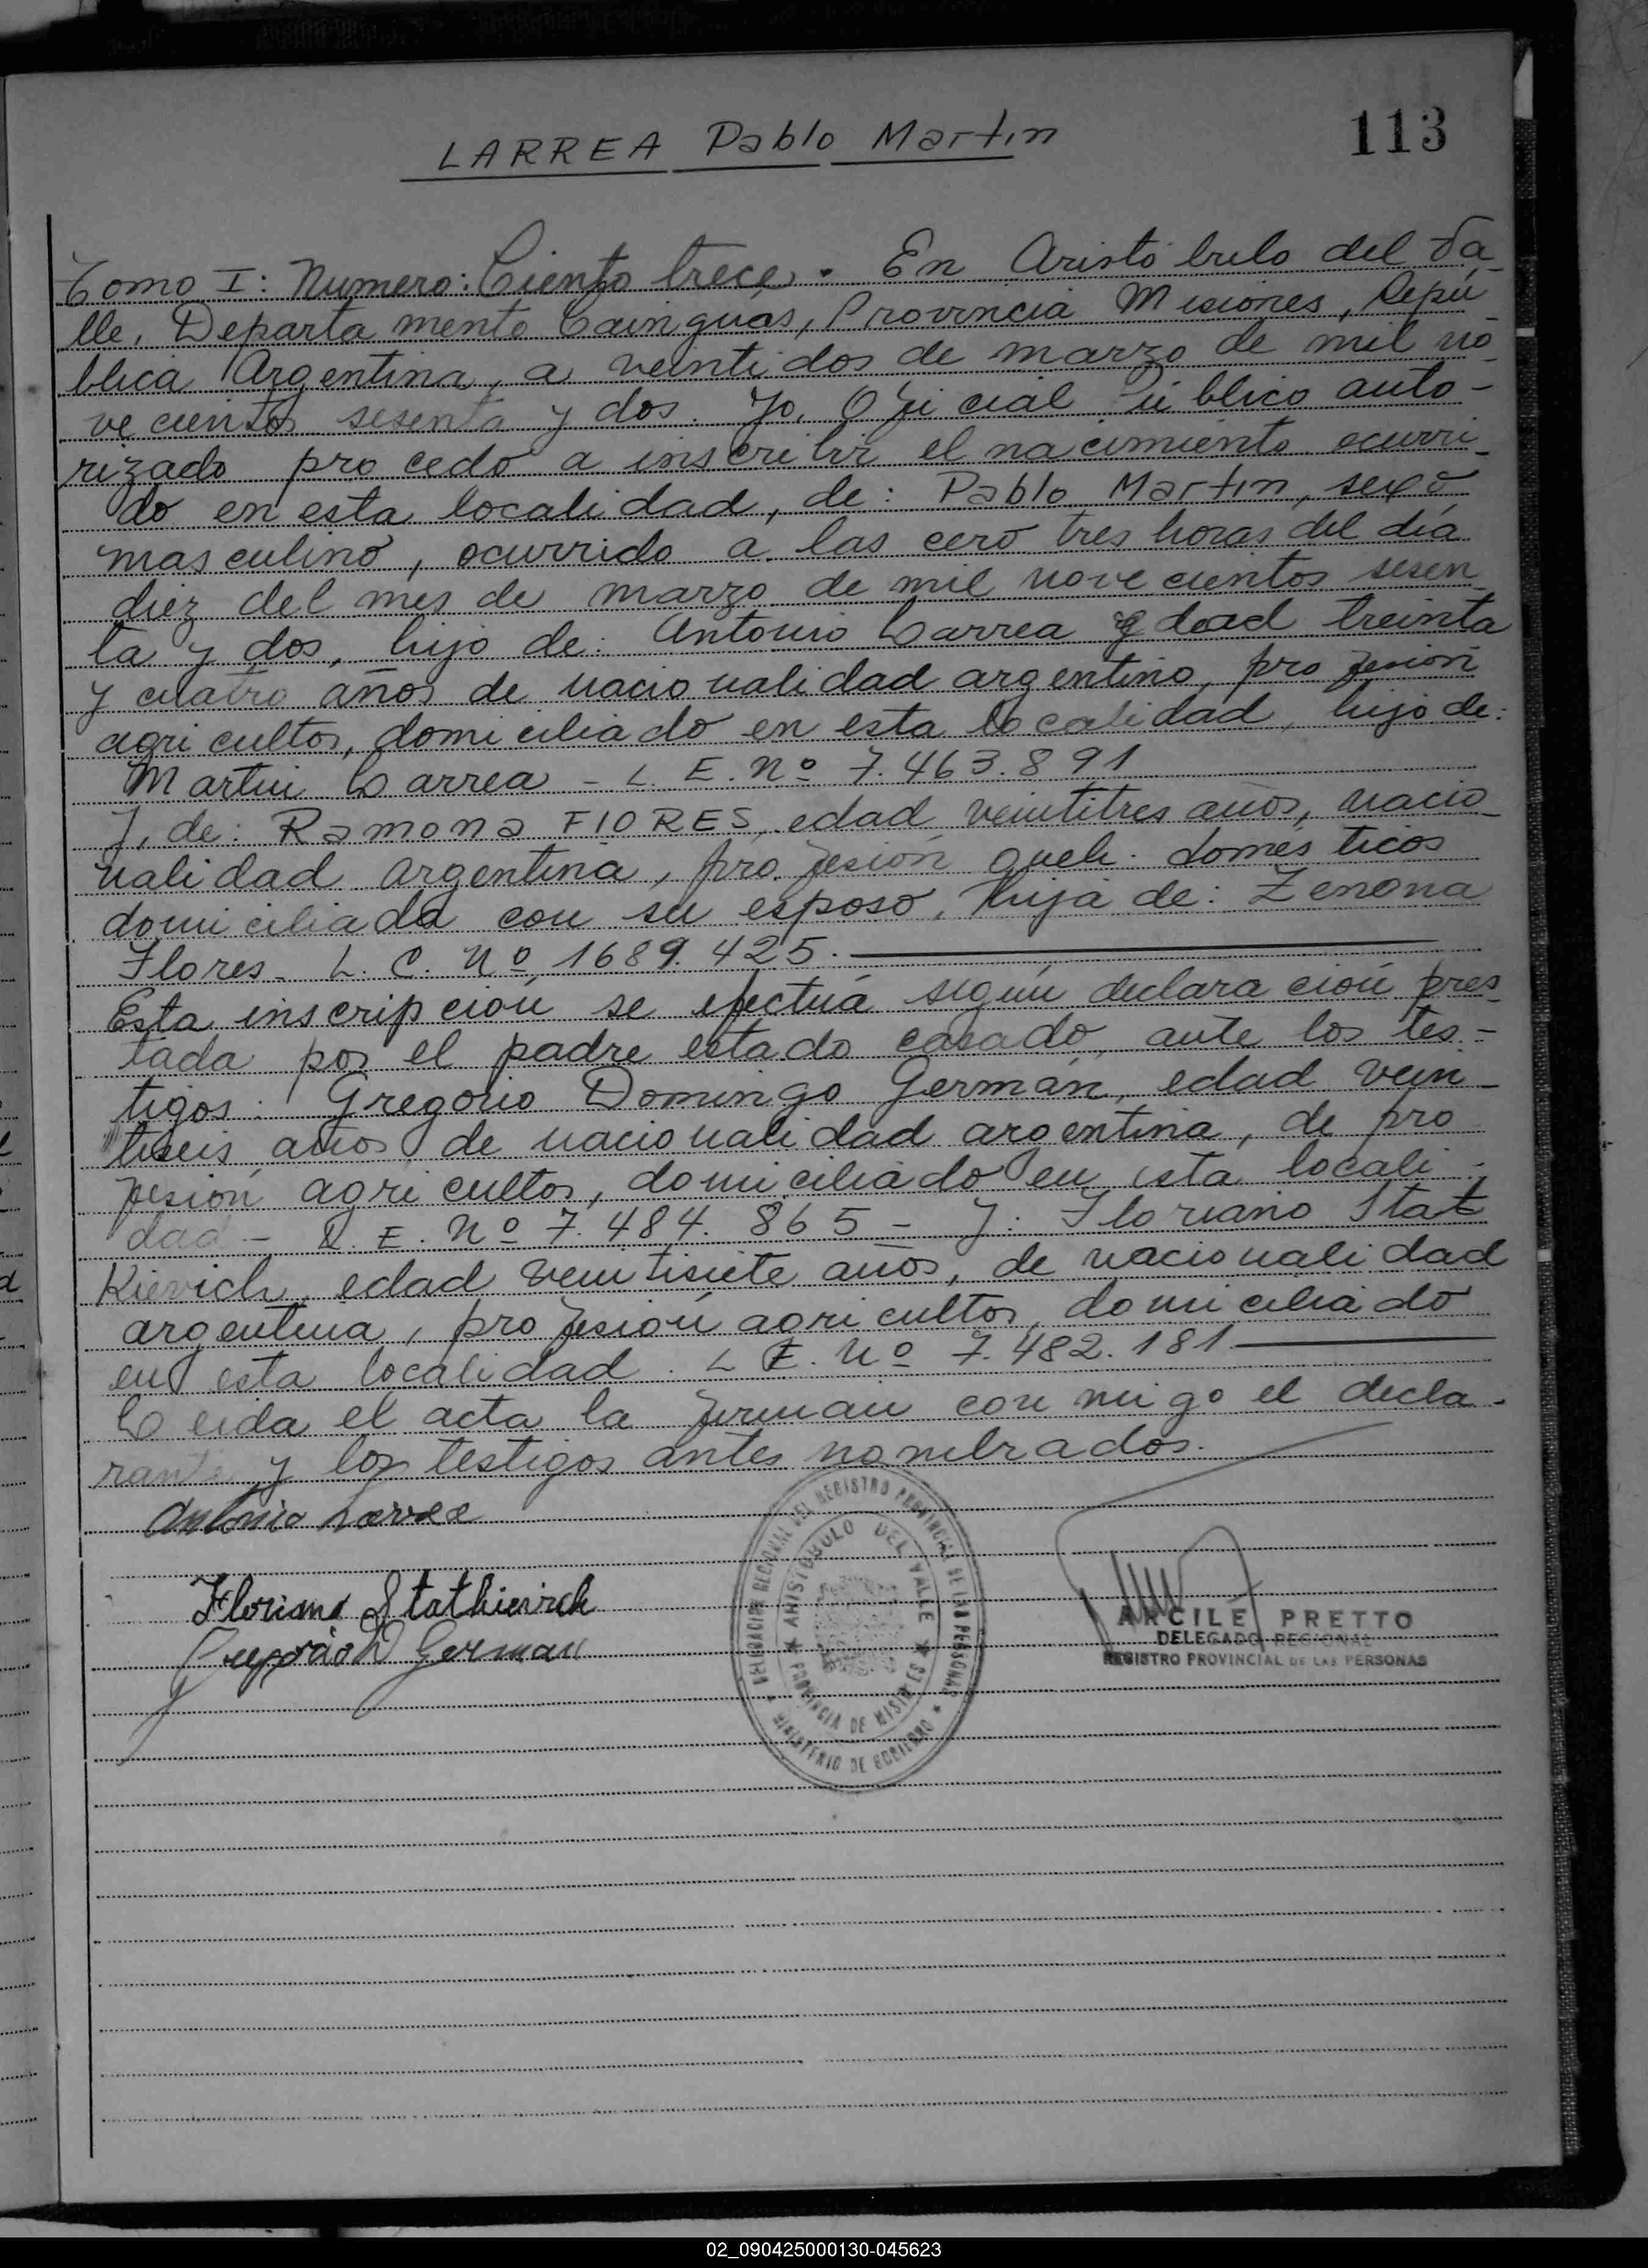 LARREA Pablo Martin
113
Tomo I: Numero: Ciento trece. En Aristó bulo del Va
lle, Departa mento Cainguás, Provincia Misiones, Repú
blica Argentina, a veinti dos de marzo de mil no
ve cientos sesenta y dos. Yo, Ofi cial Pú blico auto-
rizado pro cedo a inscribir el na cimiento ocurri
do en esta locali dad, de: Pablo Martin, sexo
mas culino, ocurrido a las cero tres horas del día
diez del mes de marzo de mil nove cientos sesen
ta y dos, hijo de: Antonio Larrea edad treinta
y cuatro años de nacio nalidad argentino, pro fesión
agri cultor, domi ciliado en esta localidad, hijo de:
Martin Larrea - L. E. Nº 7.463.891
Y, de: Ramona FLORES, edad veintitres años, nacio
nalidad argentina, pro fesión queh. domés ticos
domi ciliada con su esposo, hija de: Zenona
Flores - L. C. Nº 1689.425.
Esta inscrip ción se efectúa según declara ción pres
tada por el padre estado casado, ante los tes-
tigos: Gregorio Domingo Germán, edad vein-
tiseis años de nacio nalidad argentina, de pro
fesión agri cultor, domi ciliado en esta locali
dad - L. E. Nº 7.484.865 - Y: Floriano Stat
Kievich, edad vein tisiete años, de nacio nalidad
argentina, pro fesión agri cultor, domi ciliado
en esta localidad. L E. Nº 7.482.181
Leida el acta la firman con mi go el decla-
rante y los testigos antes nombrados.
Antonio Larrea
Floriano Stathievich
Gregorio D German
DELEGACION REGIONAL DEL REGISTRO PROVINCIAL DE LAS PERSONAS
MINISTERIO DE GOBIERNO
ARISTOBULO DEL VALLE
PROVINCIA DE MISIONES
ARCILE PRETTO
DELEGADO REGIONAL
REGISTRO PROVINCIAL DE LAS PERSONAS
02_090425000130-045623